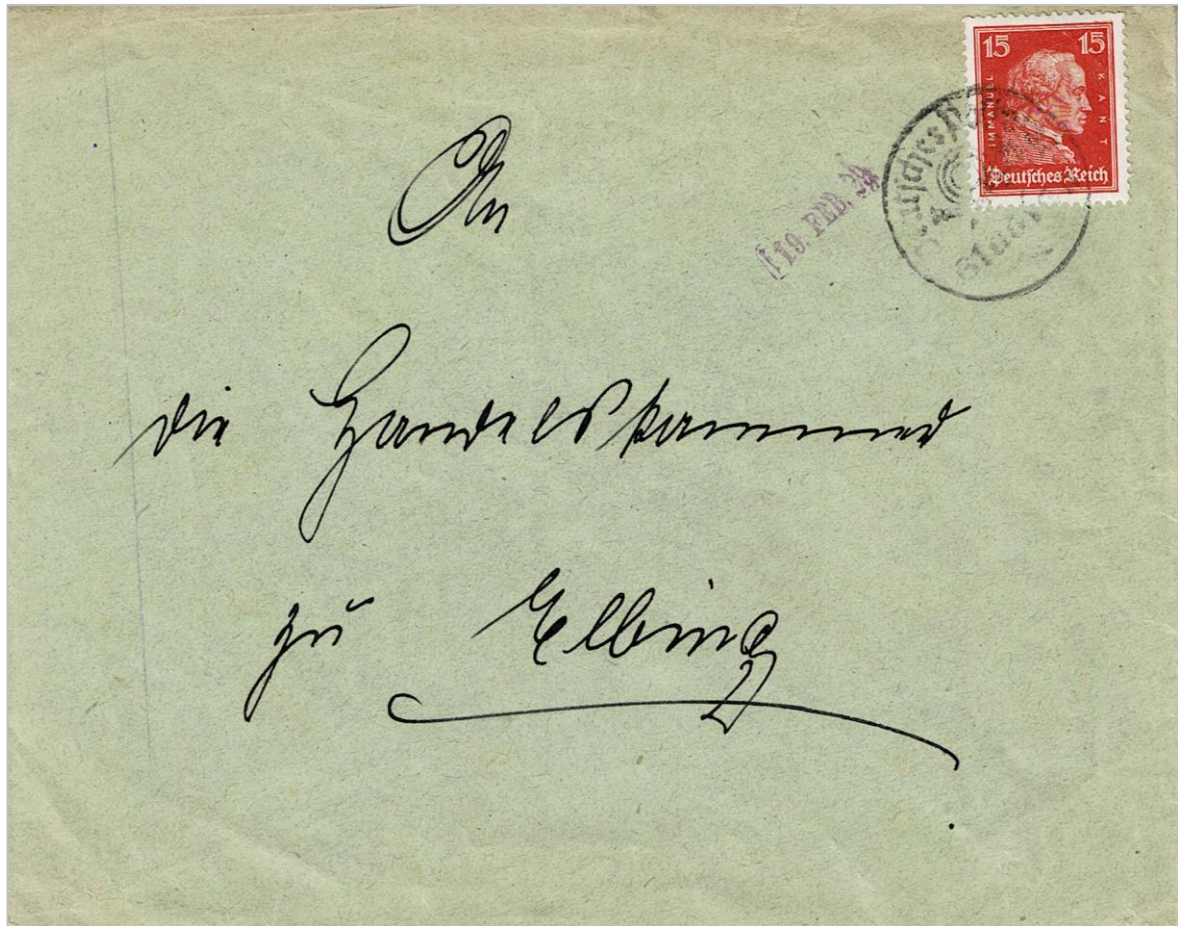 15 15
IMMANUEL KANT
Deutsches Reich
19. FEB.
An
die Handelskammer
zu Elbing